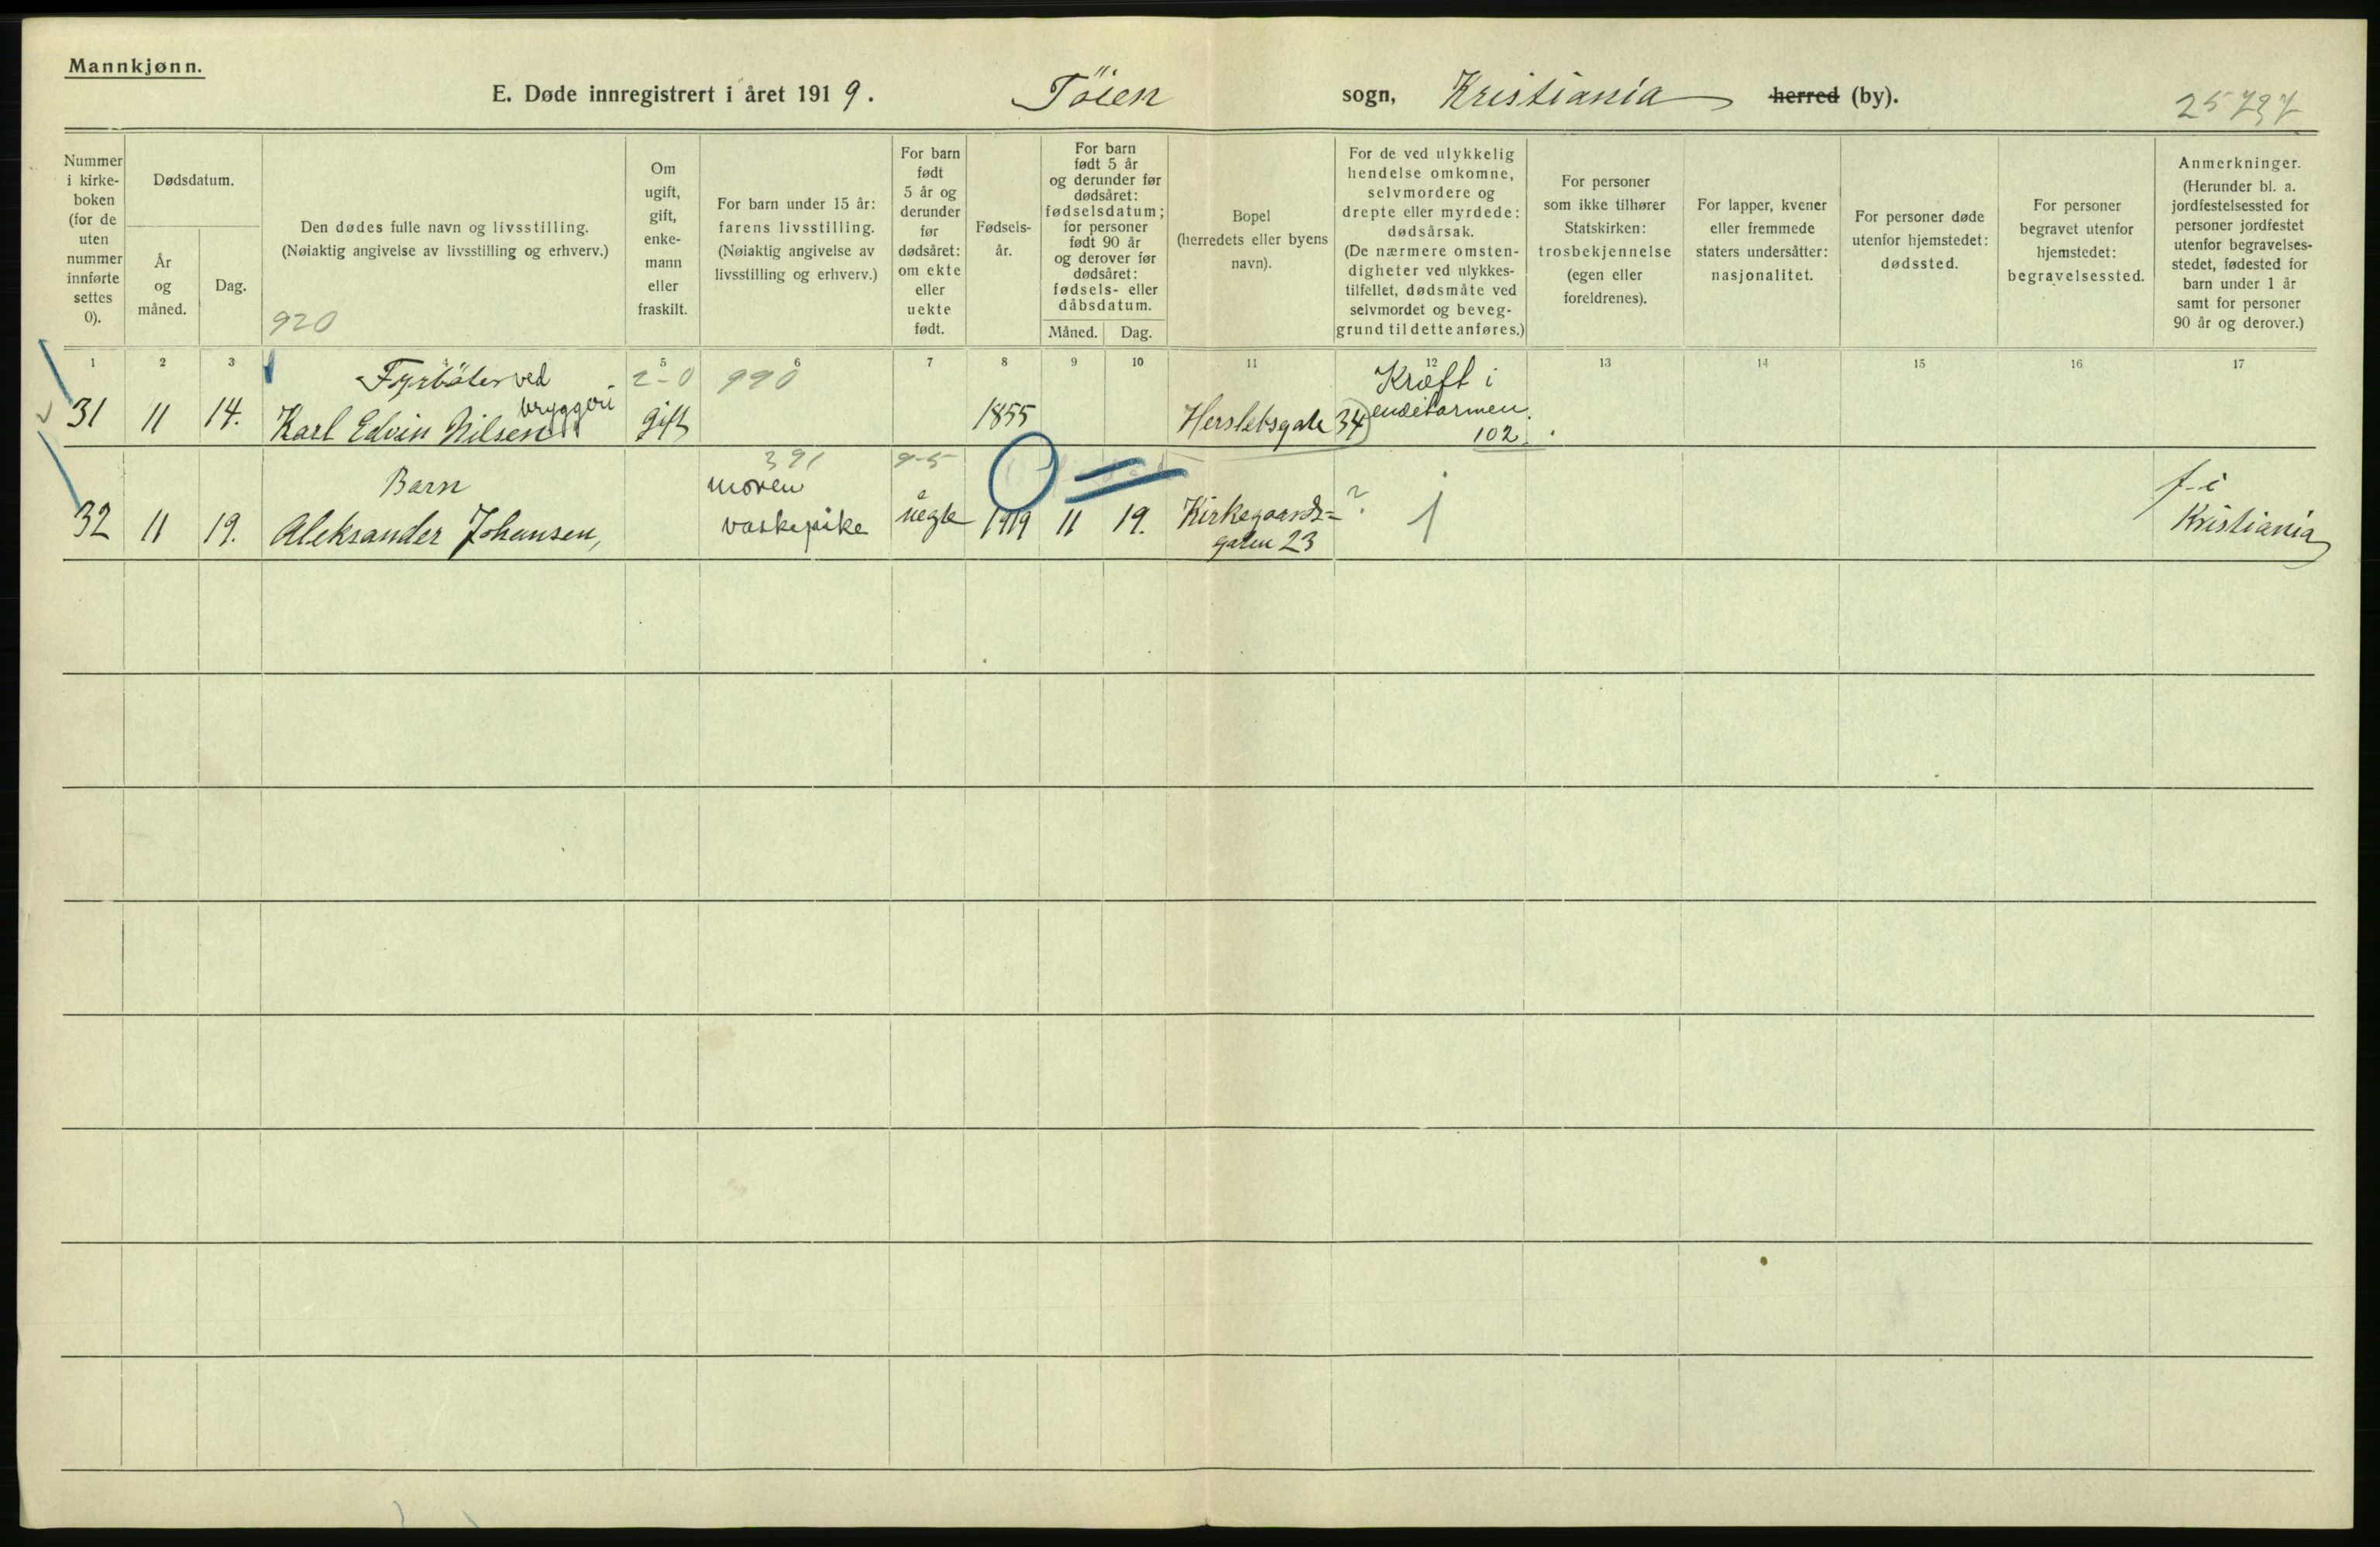 Mannkjønn.
E. Døde innregistrert i året 1919. Töien sogn, Kristiania herred (by).
25797
Nummer i kirke-boken (for de uten nummer innførte settes 0).
Dødsdatum.
År og måned.
Dag.
Den dødes fulle navn og livsstilling.
(Nøiaktig angivelse av livsstilling og erhverv.)
920
Om ugift, gift, enke-mann eller fraskilt.
For barn under 15 år: farens livsstilling.
(Nøiaktig angivelse av livsstilling og erhverv.)
For barn født 5 år og derunder før dødsåret: om ekte eller uekte født.
Fødsels-år.
For barn født 5 år og derunder før dødsåret: fødselsdatum; for personer født 90 år og derover før dødsåret: fødsels- eller dåbsdatum.
Måned. Dag.
Bopel (herredets eller byens navn).
For de ved ulykkelig hendelse omkomne, selvmordere og drepte eller myrdede: dødsårsak.
(De nærmere omsten-digheter ved ulykkes-tilfellet, dødsmåte ved selvmordet og beveg-grund til dette anføres.)
For personer som ikke tilhører Statskirken: trosbekjennelse (egen eller foreldrenes).
For lapper, kvener eller fremmede staters undersåtter: nasjonalitet.
For personer døde utenfor hjemstedet: dødssted.
For personer begravet utenfor hjemstedet: begravelsessted.
Anmerkninger.
(Herunder bl. a. jordfestelsessted for personer jordfestet utenfor begravelses-stedet, fødested for barn under 1 år samt for personer 90 år og derover.)
1 2 3 4 5 6 7 8 9 10 11 12 13 14 15 16 17
Fyrböter ved bryggeri 2-0 990 Kræft i
31 11 14. Karl Edvin Nilsen gift 1855 Herslebsgate 34 endetarmen.
102.
Barn 391 moren 9-5 f. i
32 11 19. Aleksander Johansen, vaskepike uegte 1919 11 19. Kirkegaards= ? Kristiania
gaten 23